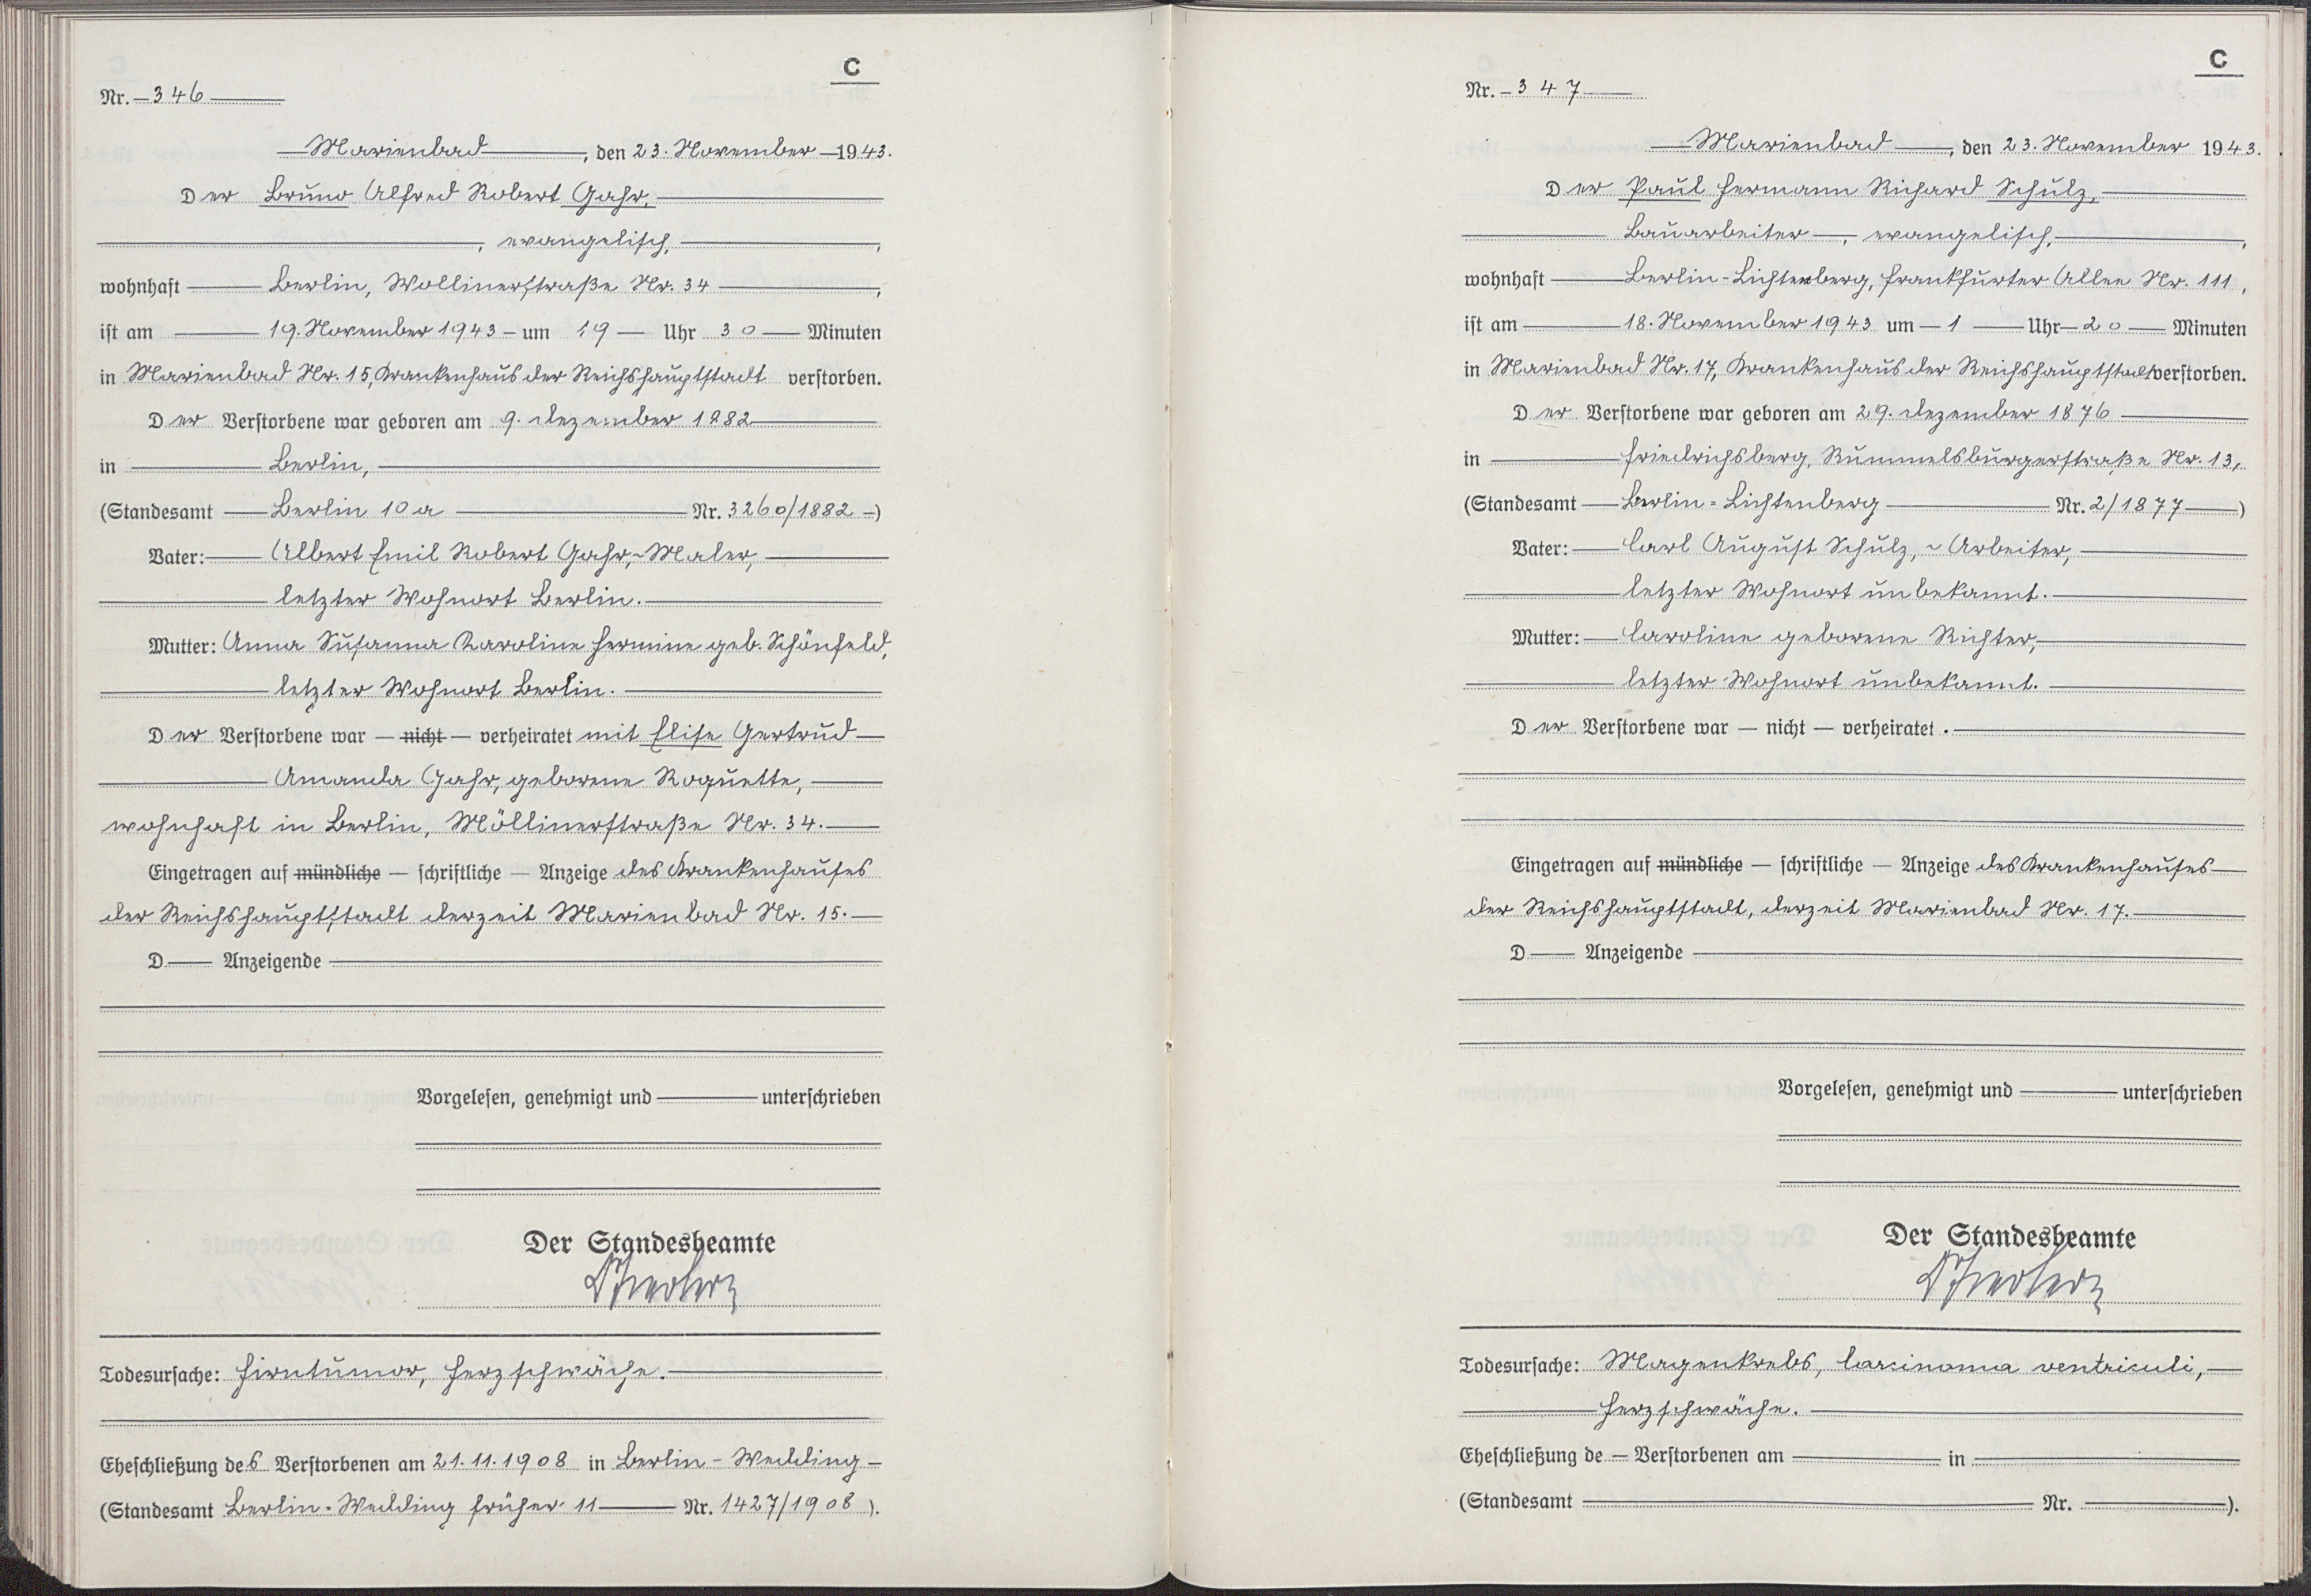 C
Nr. 346
Marienbad, den 23. November 1943.
Der Bruno Alfred Robert Gahr,
, evangelisch,
wohnhaft Berlin, Wollinerstraße Nr. 34,
ist am 19. November 1943 um 19 Uhr 30 Minuten
in Marienbad Nr. 15, Krankenhaus der Reichshauptstadt verstorben.
Der Verstorbene war geboren am 9. Dezember 1882
in Berlin,
(Standesamt Berlin 10a Nr. 3260/1882)
Vater: Albert Emil Robert Gahr, Maler,
letzter Wohnort Berlin.
Mutter: Anna Susanna Karoline Hermine geb. Schönfeld,
letzter Wohnort Berlin.
Der Verstorbene war — nicht — verheiratet mit Elise Gertrud
Amanda Gahr, geborene Roquette,
wohnhaft in Berlin, Möllinerstraße Nr. 34.
Eingetragen auf mündliche — schriftliche — Anzeige des Krankenhauses
der Reichshauptstadt derzeit Marienbad Nr. 15.
D— Anzeigende
Vorgelesen, genehmigt und unterschrieben
Der Standesbeamte
Todesursache: Hirntumor, Herzschwäche.
Eheschließung des Verstorbenen am 21.11.1908 in Berlin-Wedding
(Standesamt Berlin-Wedding früher 11 Nr. 1427/1908).
C
Nr. 347
Marienbad, den 23. November 1943.
Der Paul Hermann Richard Schulz,
Bauarbeiter, evangelisch,
wohnhaft Berlin-Lichtenberg, Frankfurter Allee Nr. 111,
ist am 18. November 1943 um 1 Uhr 20 Minuten
in Marienbad Nr. 17, Krankenhaus der Reichshauptstadt verstorben.
Der Verstorbene war geboren am 29. Dezember 1876
in Friedrichsberg, Rummelsburgerstraße Nr. 13,
(Standesamt Berlin-Lichtenberg Nr. 2/1877)
Vater: Carl August Schulz, Arbeiter,
letzter Wohnort unbekannt.
Mutter: Caroline geborene Richter,
letzter Wohnort unbekannt.
Der Verstorbene war — nicht — verheiratet.
Eingetragen auf mündliche — schriftliche — Anzeige des Krankenhauses
der Reichshauptstadt, derzeit Marienbad Nr. 17.
D— Anzeigende
Vorgelesen, genehmigt und unterschrieben
Der Standesbeamte
Todesursache: Magenkrebs, Carcinoma ventriculi,
Herzschwäche.
Eheschließung de— Verstorbenen am — in —
(Standesamt — Nr. —).